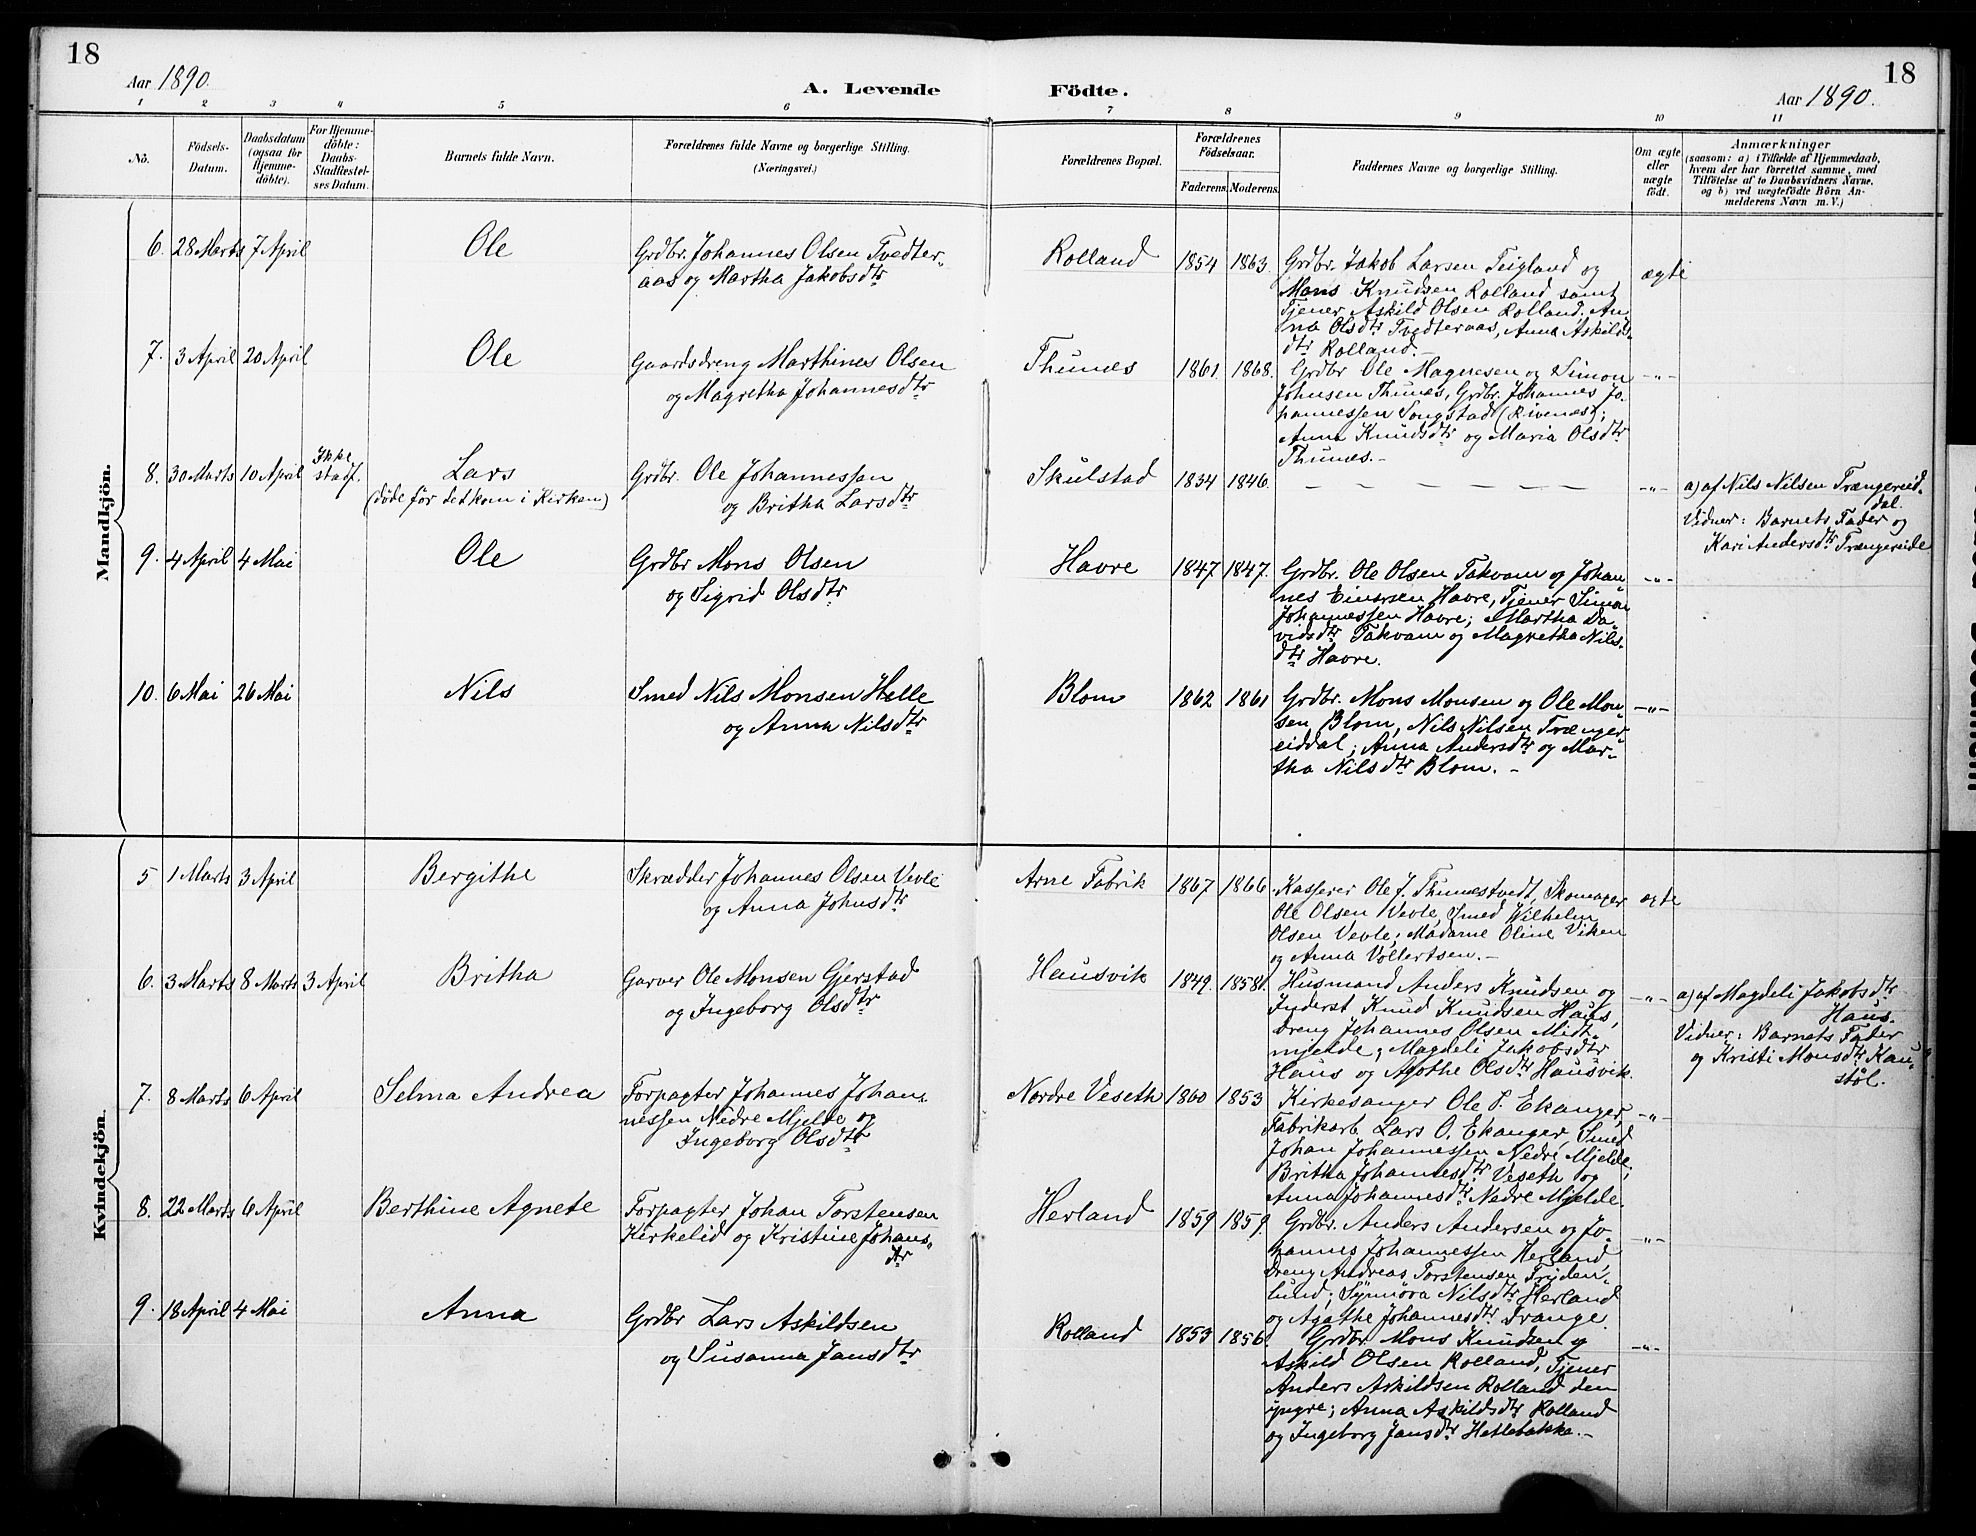 18
18
Aar 1890.
A. Levende Födte.
Aar 1890.
1 2 3 4 5 6 7 8 9 10 11
No.
Födsels-
Datum.
Daabsdatum
(ogsaa for
Hjemme-
döbte).
For Hjemme-
döbte:
Daabs-
Stadfæstel-
ses Datum.
Barnets fulde Navn.
Forældrenes fulde Navne og borgerlige Stilling.
(Næringsvei.)
Forældrenes Bopæl.
Forældrenes
Födselsaar.
Faderens.
Moderens.
Faddernes Navne og borgerlige Stilling.
Om ægte
eller
uægte
födt.
Anmærkninger
(saasom: a) i Tilfælde af Hjemmedaab,
hvem der har forrettet samme, med
Tilföielse af to Daabsvidners Navne,
og b) ved uægtefödte Börn An-
melderens Navn m. V.)
Mandkjön.
6. 28 Marts 7 April
Ole
Grdbr. Johannes Olsen Tvedter-
aas og Martha Jakobsdtr
Rolland
1854 1863.
Grdbr. Jakob Larsen Teigland og
Mons Knudsen Rolland samt
Tjener Askild Olsen Rolland. An-
na Olsdtr Tvedteraas, Anna Askilds-
dtr Rolland.-
ægte
7. 3 April 20 April
Ole
Gaardsdreng Marthines Olsen
og Magretha Johannesdtr
Thunes
1861. 1868.
Grdbr Ole Magnesen og Simon
Johnsen Thunes, Grdbr. Johannes Jo-
hannessen Songstad (Rivenæs);
Anna Knudsdtr og Maria Olsdtr
Thunes.-
-"-
8. 30 Marts 10 April
Ikke
stadf.
Lars
(døde før det kom i Kirken)
Grdbr. Ole Johannessen
og Britha Larsdtr
Skulstad
1834 1846.
- - - - - - -
-"-
a) af Nils Nilsen Trængereid-
dal.
Vidner: Barnets Fader og
Kari Andersdtr Trængereide
9. 4 April 4 Mai
Ole
Grdbr Mons Olsen
og Sigrid Olsdtr
Havre
1847. 1847.
Grdbr. Ole Olsen Takvam og Johan-
nes Einersen Havre, Tjener Simon
Johannessen Havre; Martha Da-
vidsdtr Takvam og Magretha Nils-
dtr Havre.
-"-
10. 6 Mai 26 Mai
Nils
Smed Nils Monsen Helle
og Anna Nilsdtr
Blom
1862 1861
Grdbr. Mons Monsen og Ole Mon-
sen Blom, Nils Nilsen Trænger-
eiddal; Anna Andersdtr og Mar-
tha Nilsdtr Blom.-
-"-
Kvindekjön.
5 1 Marts 3 April
Bergithe
Skrædder Johannes Olsen Vevle
og Anna Johnsdtr
Arne Fabrik
1867 1866
Kasserer Ole J. Thunestvedt, Skomager
Ole Olsen Vevle, Smed Wilhelm
Olsen Vevle; Madame Oline Viken
og Anna Vollertsen.-
ægte
6. 3 Marts 8 Marts 3 April
Britha
Garver Ole Monsen Gjerstad
og Ingeborg Olsdtr
Hausvik
1849. 1858.
Husmand Anders Knudsen og
Inderst Knud Knudsen Haus,
Dreng Johannes Olsen Midt-
mjelde; Magdeli Jakobsdtr
Haus og Agothe Olsdtr Hausvik.
-"-
a) af Magdeli Jakobsdtr
Haus.
Vidner: Barnets Fader
og Kristi Monsdtr Kau-
støl.
7. 8 Marts 6 April
Selma Andrea
Forpagter Johannes Johan-
nessen Nedre Mjelde og
Ingeborg Olsdtr
Nordre Veseth
1860 1853
Kirkesanger Ole P. Ekanger,
Fabrikarb. Lars O. Ekanger, Smed
Johan Johannessen Nedre Mjelde,
Britha Johannesdtr Veseth og
Anna Johannesdtr Nedre Mjelde.
-"-
8. 22 Marts 6 April
Berthine Agnete
Forpagter Johan Torstensen
Kirkelid og Kristine Johans-
dtr
Herland
1859 1859.
Grdbr. Anders Andersen og Jo-
hannes Johannessen Herland,
Dreng Andreas Torstensen Fryden-
lund; Synnøva Nilsdtr Herland
og Agathe Johannesdtr Drange.
-"-
9. 18 April 4 Mai
Anna
Grdbr Lars Askildsen
og Susanna Jansdtr
Rolland
1853 1856.
Grdbr Mons Knudsen og
Askild Olsen Rolland, Tjener
Anders Askildsen Rolland den
yngre; Anna Askildsdtr Rolland
og Ingeborg Jansdtr Hetlebakke.-
-"-